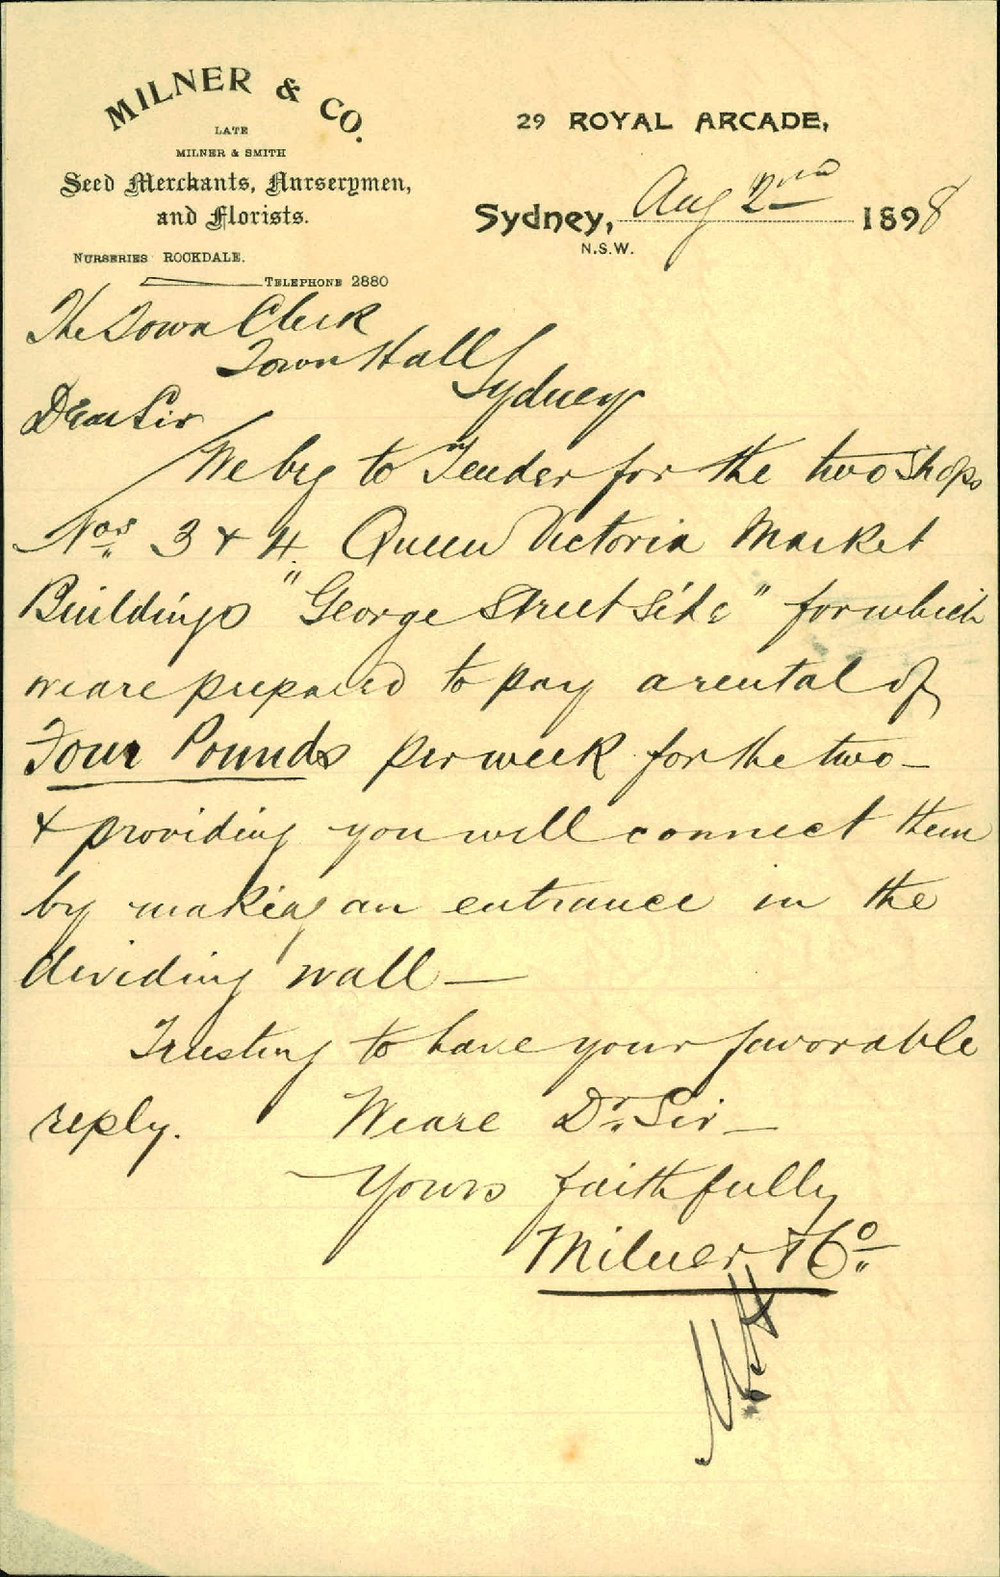 MILNER & CO.
LATE
MILNER & SMITH
Seed Merchants, Nurserymen,
and Florists.
NURSERIES ROCKDALE.
TELEPHONE 2880
29 ROYAL ARCADE,
Sydney, Aug 2nd 1898
N.S.W.
The Town Clerk
Town Hall
Sydney
Dear Sir
We beg to Tender for the two Shops
Nos 3 & 4. Queen Victoria Market
Buildings "George Street Side" for which
we are prepared to pay a rental of
Four Pounds per week for the two —
& providing you will connect them
by making an entrance in the
dividing wall —
Trusting to have your favorable
reply. We are Dr Sir —
Yours faithfully
Milner & Co